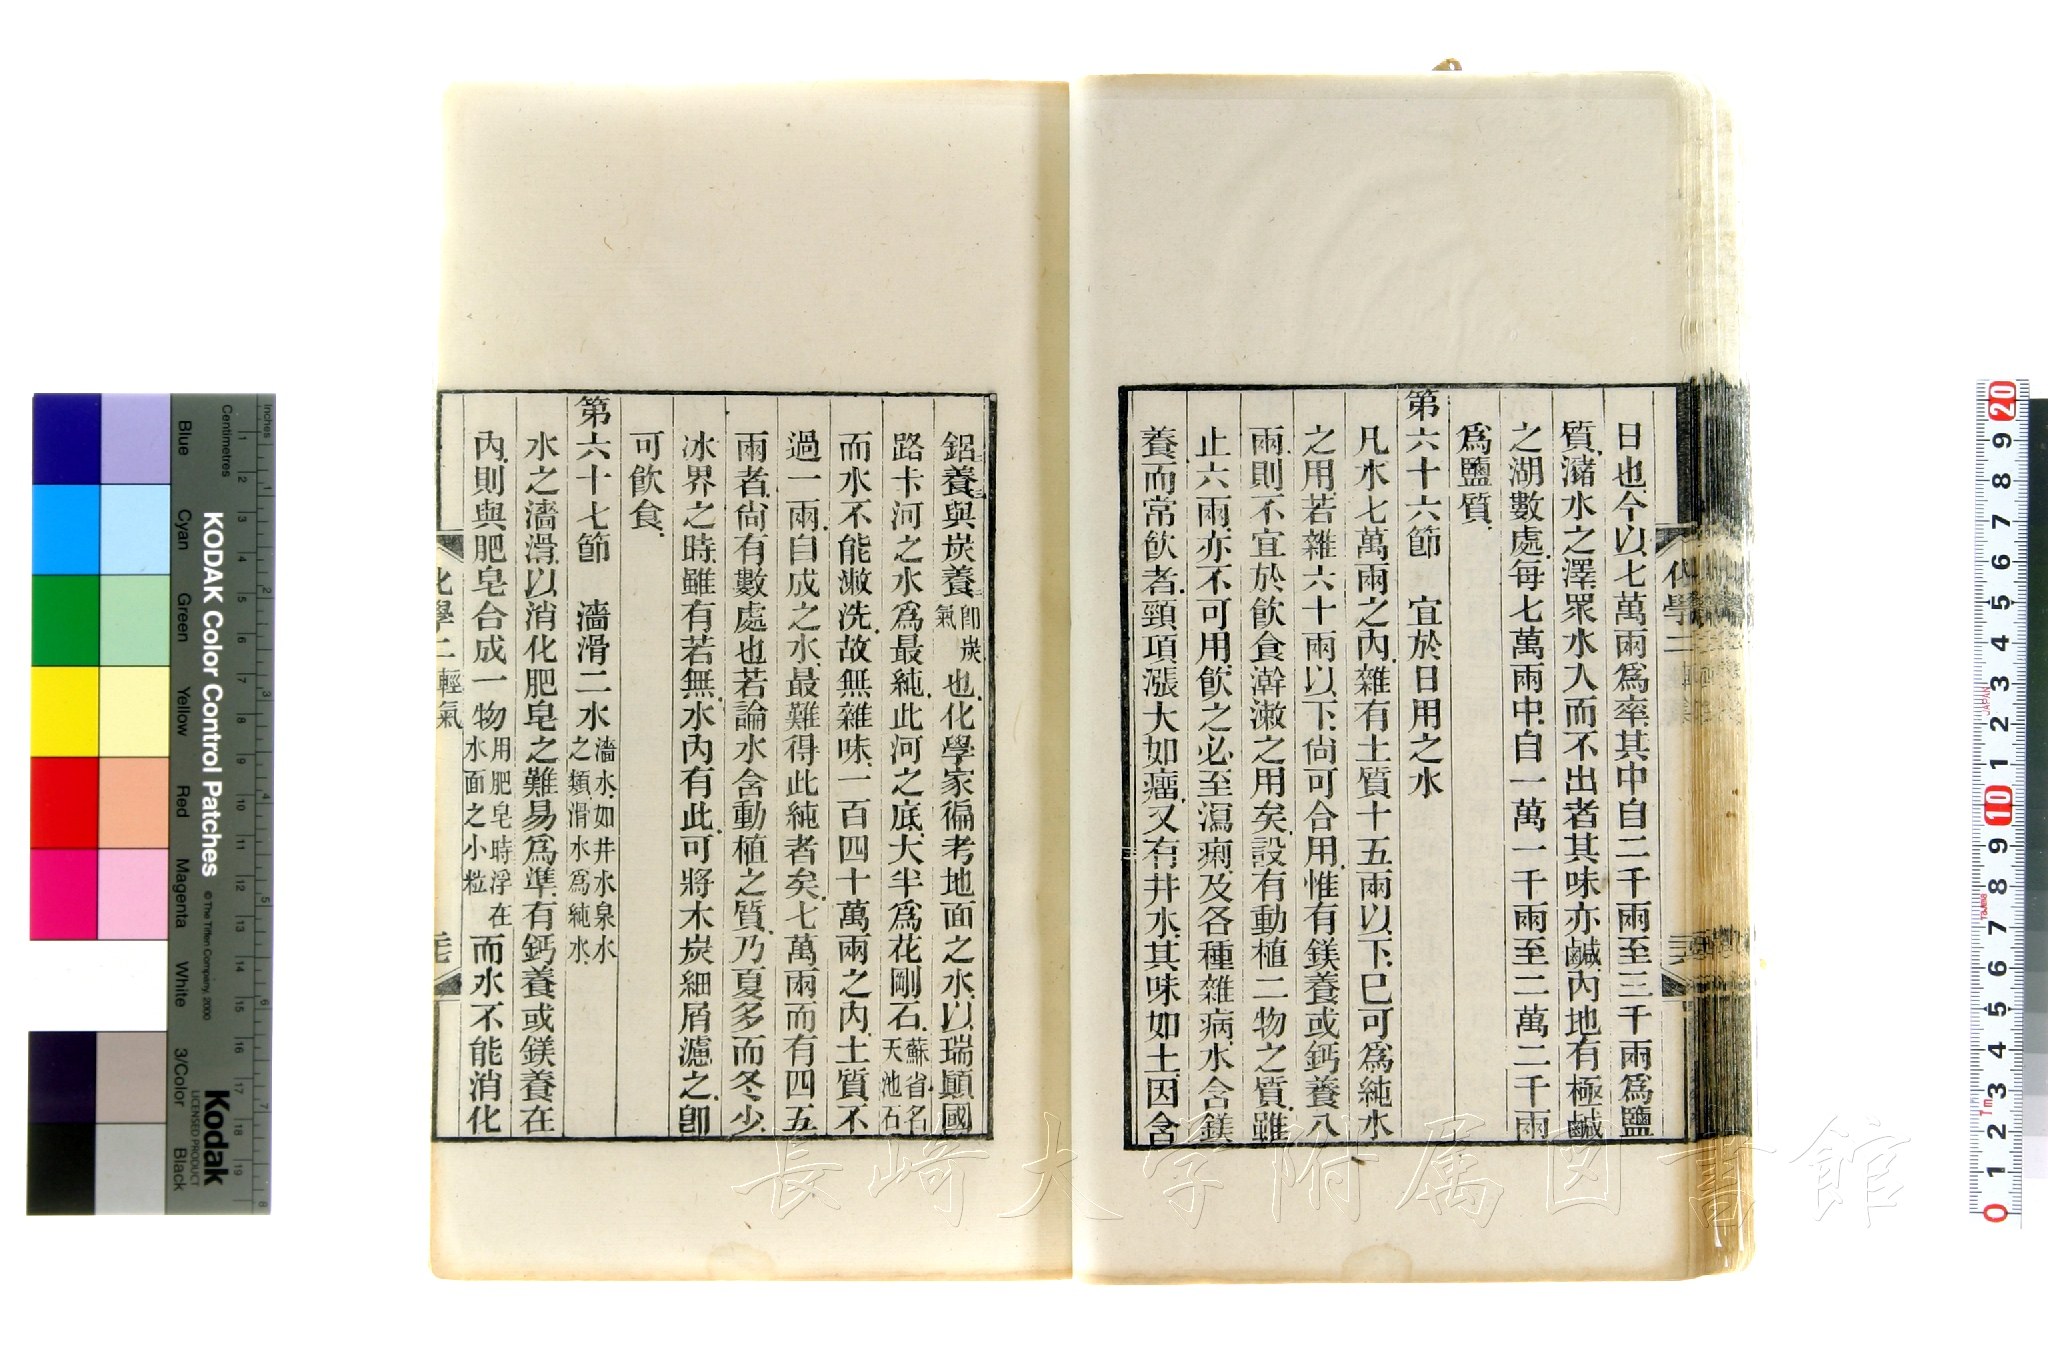 日也今以七萬兩爲率其中自二千兩至三千兩爲鹽
質瀦水之澤眾水入而不出者其味亦鹹內地有極鹹
之湖數處每七萬兩中自一萬一千兩至二萬二千兩
爲鹽質
第六十六節　宜於日用之水
凡水七萬兩之內雜有土質十五兩以下巳可爲純水
之用若雜六十兩以下尙可合用惟有鎂養或鈣養八
兩則不宜於飲食澣漱之用矣設有動植二物之質雖
止六兩亦不可用飲之必至瀉痢及各種雜病水含鎂
養而常飲者頸項漲大如癅又有井水其味如土因含
鋁養與炭養卽炭氣也化學家徧考地面之水以瑞顚國
路卡河之水爲最純此河之底大半爲花剛石蘇省名天池石
而水不能漱洗故無雜味一百四十萬兩之內土質不
過一兩自成之水最難得此純者矣七萬兩而有四五
兩者尙有數處也若論水含動植之質乃夏多而冬少
冰界之時雖有若無水內有此可將木炭細屑濾之卽
可飲食
第六十七節　濇滑二水濇水如井水泉水之類滑水爲純水
水之濇滑以消化肥皂之難易爲準有鈣養或鎂養在
內則與肥皂合成一物用肥皂時浮在水面之小粒而水不能消化
化學二輕氣
KODAK Color Control Patches
© The Tiffen Company, 2000
Kodak
LICENSED PRODUCT
Inches
Centimetres
Blue
Cyan
Green
Yellow
Red
Magenta
White
3/Color
Black
長崎大学附属図書館